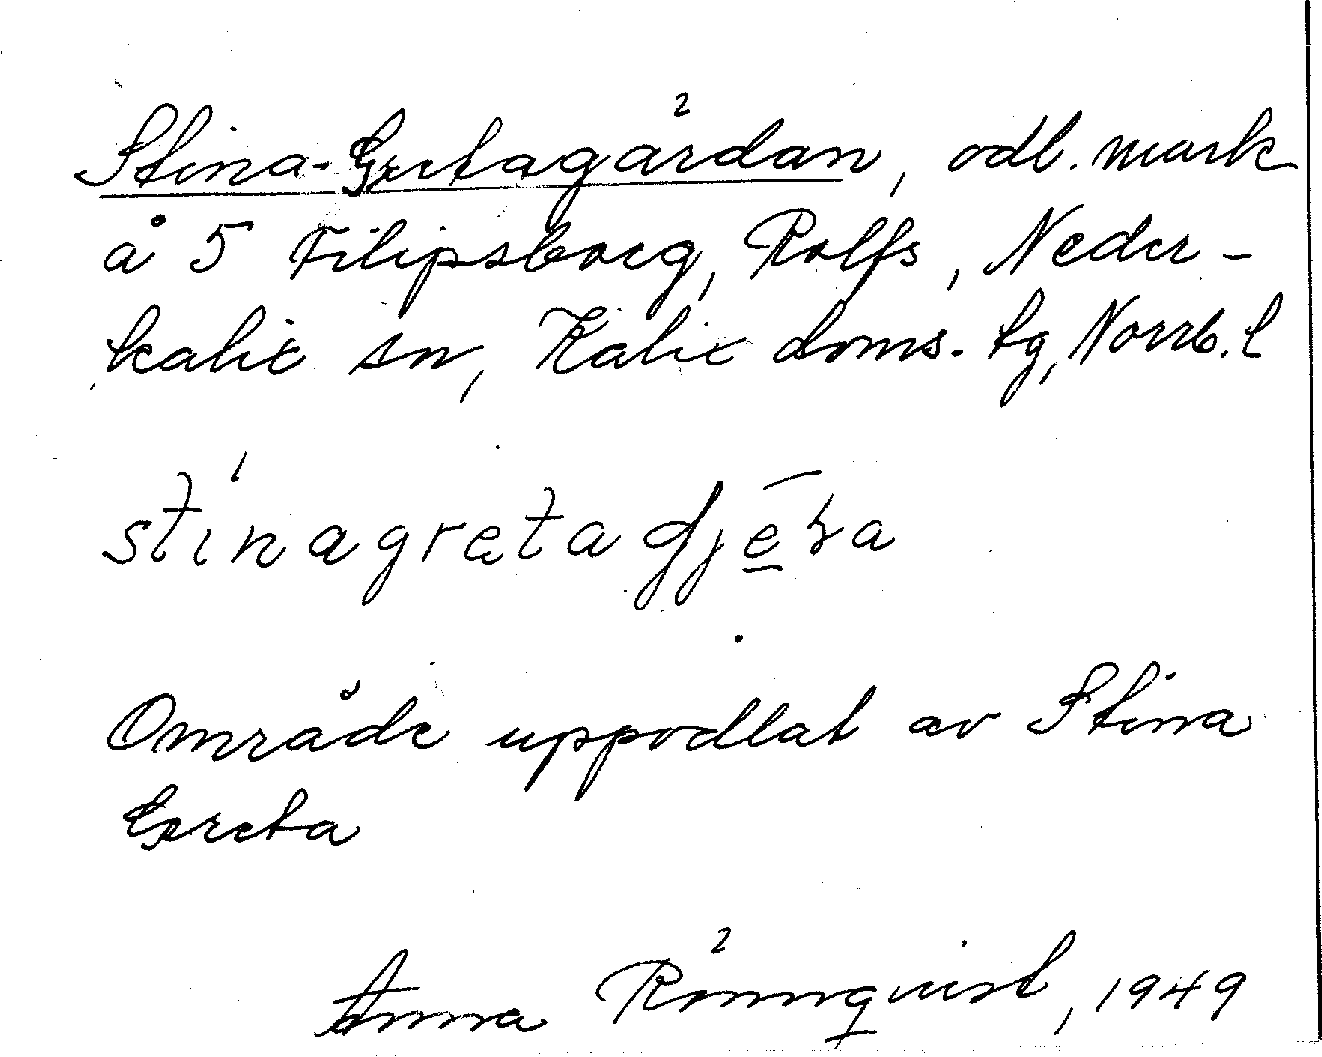 Stina-Gretagårdan, odl. mark
å 5 Filipsborg, Rolfs, Neder-
kalix sn, Kalix doms. tg, Norrb. l
stinagretadjéra
Område uppodlat av Stina
Greta
Anna Rönnqvist, 1949